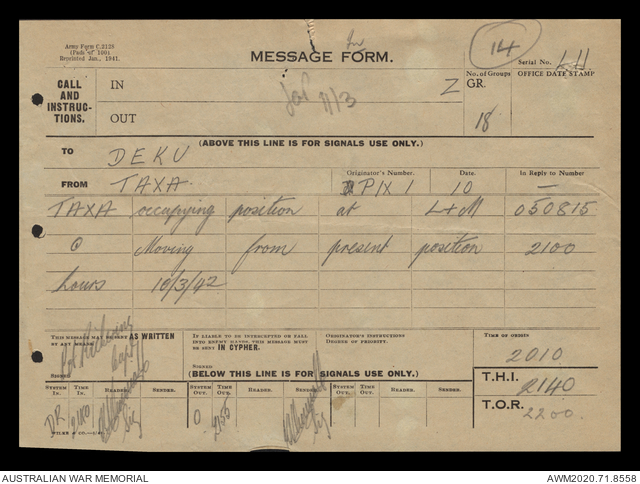 Army Form C.2128
(Pads of 100)
Reprinted Jan., 1941.
MESSAGE FORM.
14
Serial No. L.H
CALL AND INSTRUCTIONS.
IN
OUT
11/3
Z
No. of Groups
GR.
18
OFFICE DATE STAMP
(ABOVE THIS LINE IS FOR SIGNALS USE ONLY.)
TO DEKU
FROM TAXA.
Originator's Number. PIX 1
Date. 10
In Reply to Number —
TAXA occupying position at L+M 050815
@ Moving from present position 2100
hours 10/3/42
THIS MESSAGE MAY BE SENT AS WRITTEN BY ANY MEANS.
SIGNED
Capt
IF LIABLE TO BE INTERCEPTED OR FALL INTO ENEMY HANDS, THIS MESSAGE MUST BE SENT IN CYPHER.
SIGNED
ORIGINATOR'S INSTRUCTIONS
DEGREE OF PRIORITY.
TIME OF ORIGIN
2010
T.H.I. 2140
T.O.R. 2200.
(BELOW THIS LINE IS FOR SIGNALS USE ONLY.)
SYSTEM IN. TIME IN. READER. SENDER. SYSTEM OUT. TIME OUT. READER. SENDER. SYSTEM OUT. TIME OUT. READER. SENDER.
DR 2140 Sig 0 2155 Sig
AUSTRALIAN WAR MEMORIAL
AWM2020.71.8558